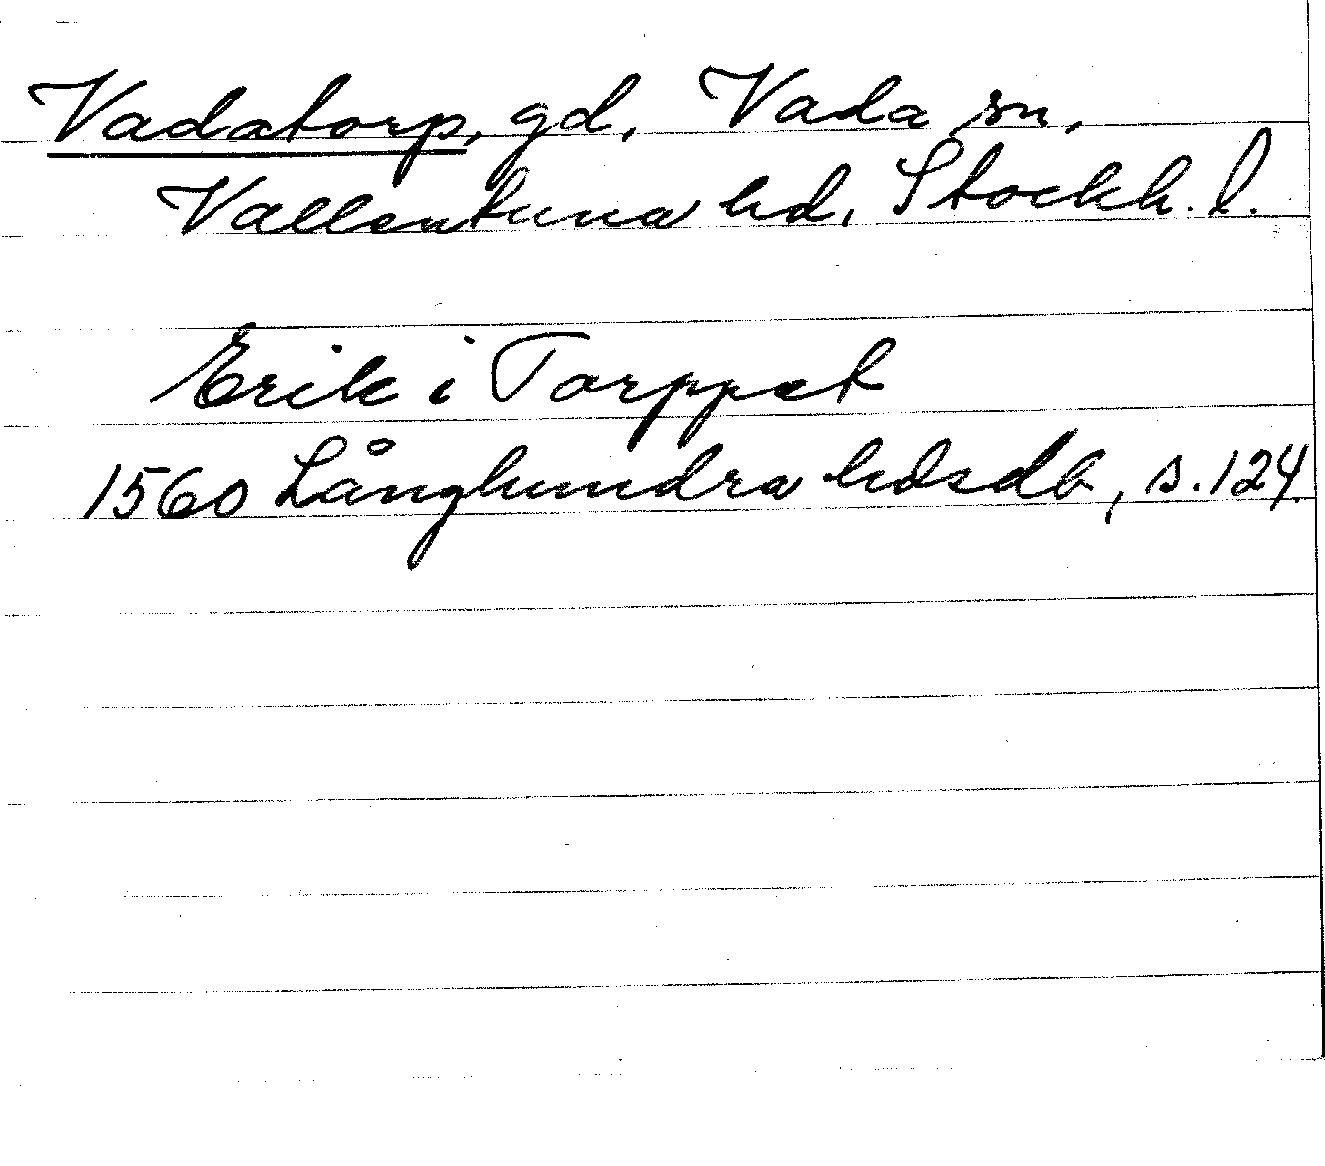 Vadatorp, gd, Vada sn,
Vallentuna hd, Stockh. l.
Erik i Torppet
1560 Långhundra hdsdb, s. 124.